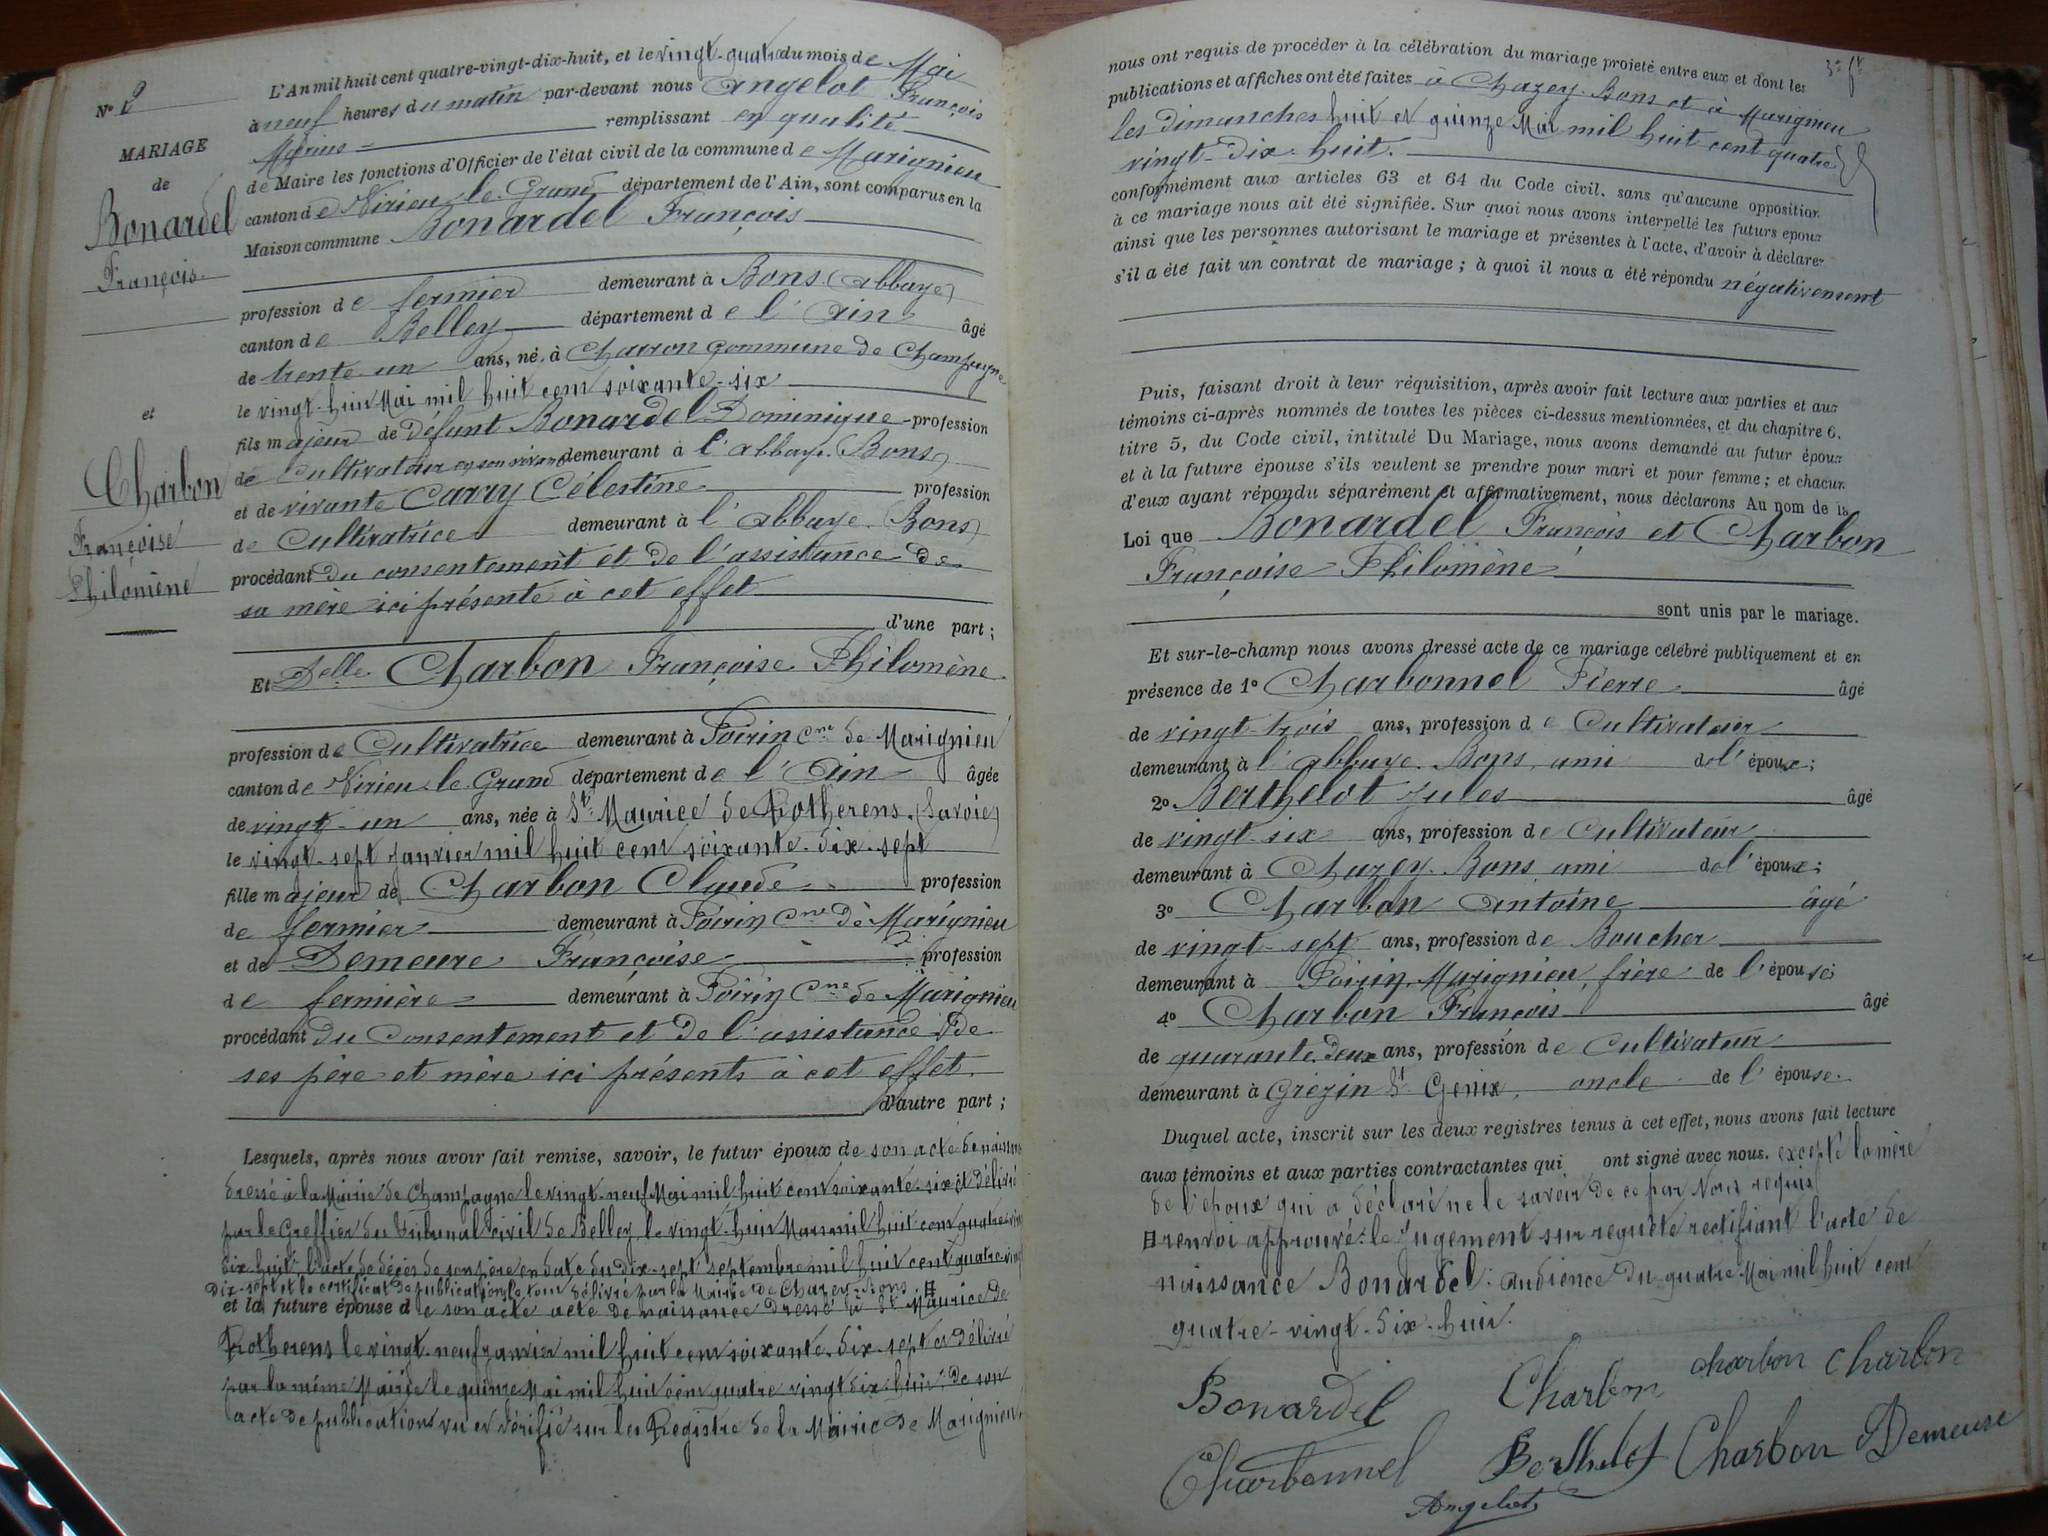 N° 2
MARIAGE
de
Bonardel
François
et
Charbon
Françoise
Philomène
L'An mil huit cent quatre-vingt-dix-huit, et le vingt-quatre du mois de Mai
à neuf heures du matin par-devant nous Angelot François
Marius remplissant en qualité
de Maire les fonctions d'Officier de l'état civil de la commune de Marignieu
canton de Virieu-le-Grand département de l'Ain, sont comparus en la
Maison commune Bonardel François
profession de fermier demeurant à Bons (abbaye)
canton de Belley département de l'Ain âgé
de trente-un ans, né à Charron commune de Champagne
le vingt-huit Mai mil huit cent soixante-six
fils majeur de défunt Bonardel Dominique profession
de Cultivateur en son vivant demeurant à l'abbaye (Bons)
et de vivante Carry Célestine profession
de Cultivatrice demeurant à l'abbaye (Bons)
procédant du consentement et de l'assistance de
sa mère ici présente à cet effet
d'une part;
Et Delle Charbon Françoise Philomène
profession de Cultivatrice demeurant à Poirin Cne de Marignieu
canton de Virieu-le-Grand département de l'Ain âgée
de vingt-un ans, née à St Maurice de Rotherens (Savoie)
le vingt-sept janvier mil huit cent soixante-dix-sept
fille majeur de Charbon Claude profession
de fermier demeurant à Poirin Cne de Marignieu
et de Demeure Françoise profession
de fermière demeurant à Poirin Cne de Marignieu
procédant du consentement et de l'assistance de
ses père et mère ici présents à cet effet
d'autre part;
Lesquels, après nous avoir fait remise, savoir, le futur époux de son acte de naissance
dressé à la Mairie de Champagne le vingt-neuf Mai mil huit cent soixante-six et délivré
par le Greffier du Tribunal civil de Belley, le vingt-huit Mars mil huit cent quatre-vingt
dix-huit; l'acte de décès de son père en date du dix-sept septembre mil huit cent quatre-vingt
dix-sept et le certificat de publication le tout délivré par la Mairie de Chazey-Bons
et la future épouse de son acte acte de naissance dressé à St Maurice de
Rotherens le vingt-neuf janvier mil huit cent soixante-dix-sept et délivré
par la même Mairie le quinze Mai mil huit cent quatre vingt dix huit; de son
acte de publications vu et vérifié sur les Registre de la Mairie de Marignieu
nous ont requis de procéder à la célébration du mariage projeté entre eux et dont les
publications et affiches ont été faites à Chazey-Bons et à Marignieu
les dimanches huit et quinze Mai mil huit cent quatre
vingt-dix-huit.
conformément aux articles 63 et 64 du Code civil, sans qu'aucune opposition
à ce mariage nous ait été signifiée. Sur quoi nous avons interpellé les futurs époux
ainsi que les personnes autorisant le mariage et présentes à l'acte, d'avoir à déclarer
s'il a été fait un contrat de mariage; à quoi il nous a été répondu négativement
Puis, faisant droit à leur réquisition, après avoir fait lecture aux parties et aux
témoins ci-après nommés de toutes les pièces ci-dessus mentionnées, et du chapitre 6,
titre 5, du Code civil, intitulé Du Mariage, nous avons demandé au futur époux
et à la future épouse s'ils veulent se prendre pour mari et pour femme; et chacun
d'eux ayant répondu séparément et affirmativement, nous déclarons Au nom de la
Loi que Bonardel François et Charbon
Françoise Philomène
sont unis par le mariage.
Et sur-le-champ nous avons dressé acte de ce mariage célébré publiquement et en
présence de 1° Charbonnel Pierre âgé
de vingt-trois ans, profession de Cultivateur
demeurant à l'abbaye Bons, ami de l'époux;
2° Berthelot Jules âgé
de vingt-six ans, profession de Cultivateur
demeurant à Chazey-Bons, ami de l'époux;
3° Charbon Antoine âgé
de vingt-sept ans, profession de Boucher
demeurant à Poirin, Marignieu, frère de l'épouse;
4° Charbon François âgé
de quarante-deux ans, profession de Cultivateur
demeurant à Grézin St Genix, oncle de l'épouse.
Duquel acte, inscrit sur les deux registres tenus à cet effet, nous avons fait lecture
aux témoins et aux parties contractantes qui ont signé avec nous, excepté la mère
de l'époux qui a déclaré ne le savoir de ce par Nous requis
renvoi approuvé: le jugement sur requête rectifiant l'acte de
naissance Bonardel: audience du quatre Mai mil huit cent
quatre-vingt-dix-huit.
Bonardel Charbon charbon charbon
Charbonnel Berthelot Charbon Demeure
Angelot